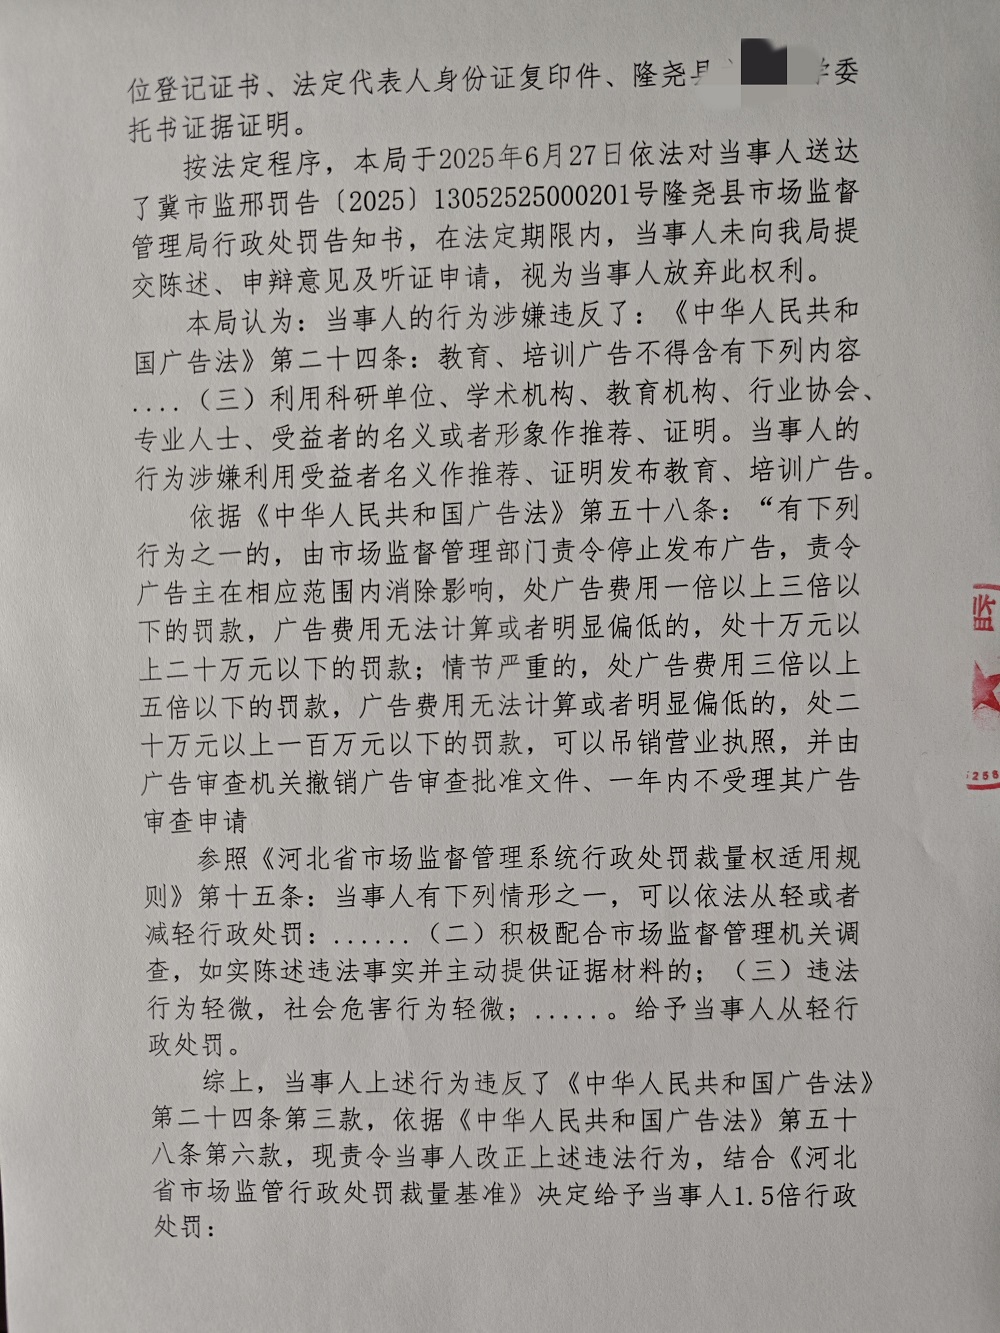 位登记证书、法定代表人身份证复印件、隆尧县 学委
托书证据证明。
按法定程序，本局于2025年6月27日依法对当事人送达
了冀市监邢罚告〔2025〕13052525000201号隆尧县市场监督
管理局行政处罚告知书，在法定期限内，当事人未向我局提
交陈述、申辩意见及听证申请，视为当事人放弃此权利。
本局认为：当事人的行为涉嫌违反了：《中华人民共和
国广告法》第二十四条：教育、培训广告不得含有下列内容
....（三）利用科研单位、学术机构、教育机构、行业协会、
专业人士、受益者的名义或者形象作推荐、证明。当事人的
行为涉嫌利用受益者名义作推荐、证明发布教育、培训广告。
依据《中华人民共和国广告法》第五十八条：“有下列
行为之一的，由市场监督管理部门责令停止发布广告，责令
广告主在相应范围内消除影响，处广告费用一倍以上三倍以
下的罚款，广告费用无法计算或者明显偏低的，处十万元以
上二十万元以下的罚款；情节严重的，处广告费用三倍以上
五倍以下的罚款，广告费用无法计算或者明显偏低的，处二
十万元以上一百万元以下的罚款，可以吊销营业执照，并由
广告审查机关撤销广告审查批准文件、一年内不受理其广告
审查申请
参照《河北省市场监督管理系统行政处罚裁量权适用规
则》第十五条：当事人有下列情形之一，可以依法从轻或者
减轻行政处罚：......（二）积极配合市场监督管理机关调
查，如实陈述违法事实并主动提供证据材料的；（三）违法
行为轻微，社会危害行为轻微；.....。给予当事人从轻行
政处罚。
综上，当事人上述行为违反了《中华人民共和国广告法》
第二十四条第三款，依据《中华人民共和国广告法》第五十
八条第六款，现责令当事人改正上述违法行为，结合《河北
省市场监管行政处罚裁量基准》决定给予当事人1.5倍行政
处罚：
监
5256